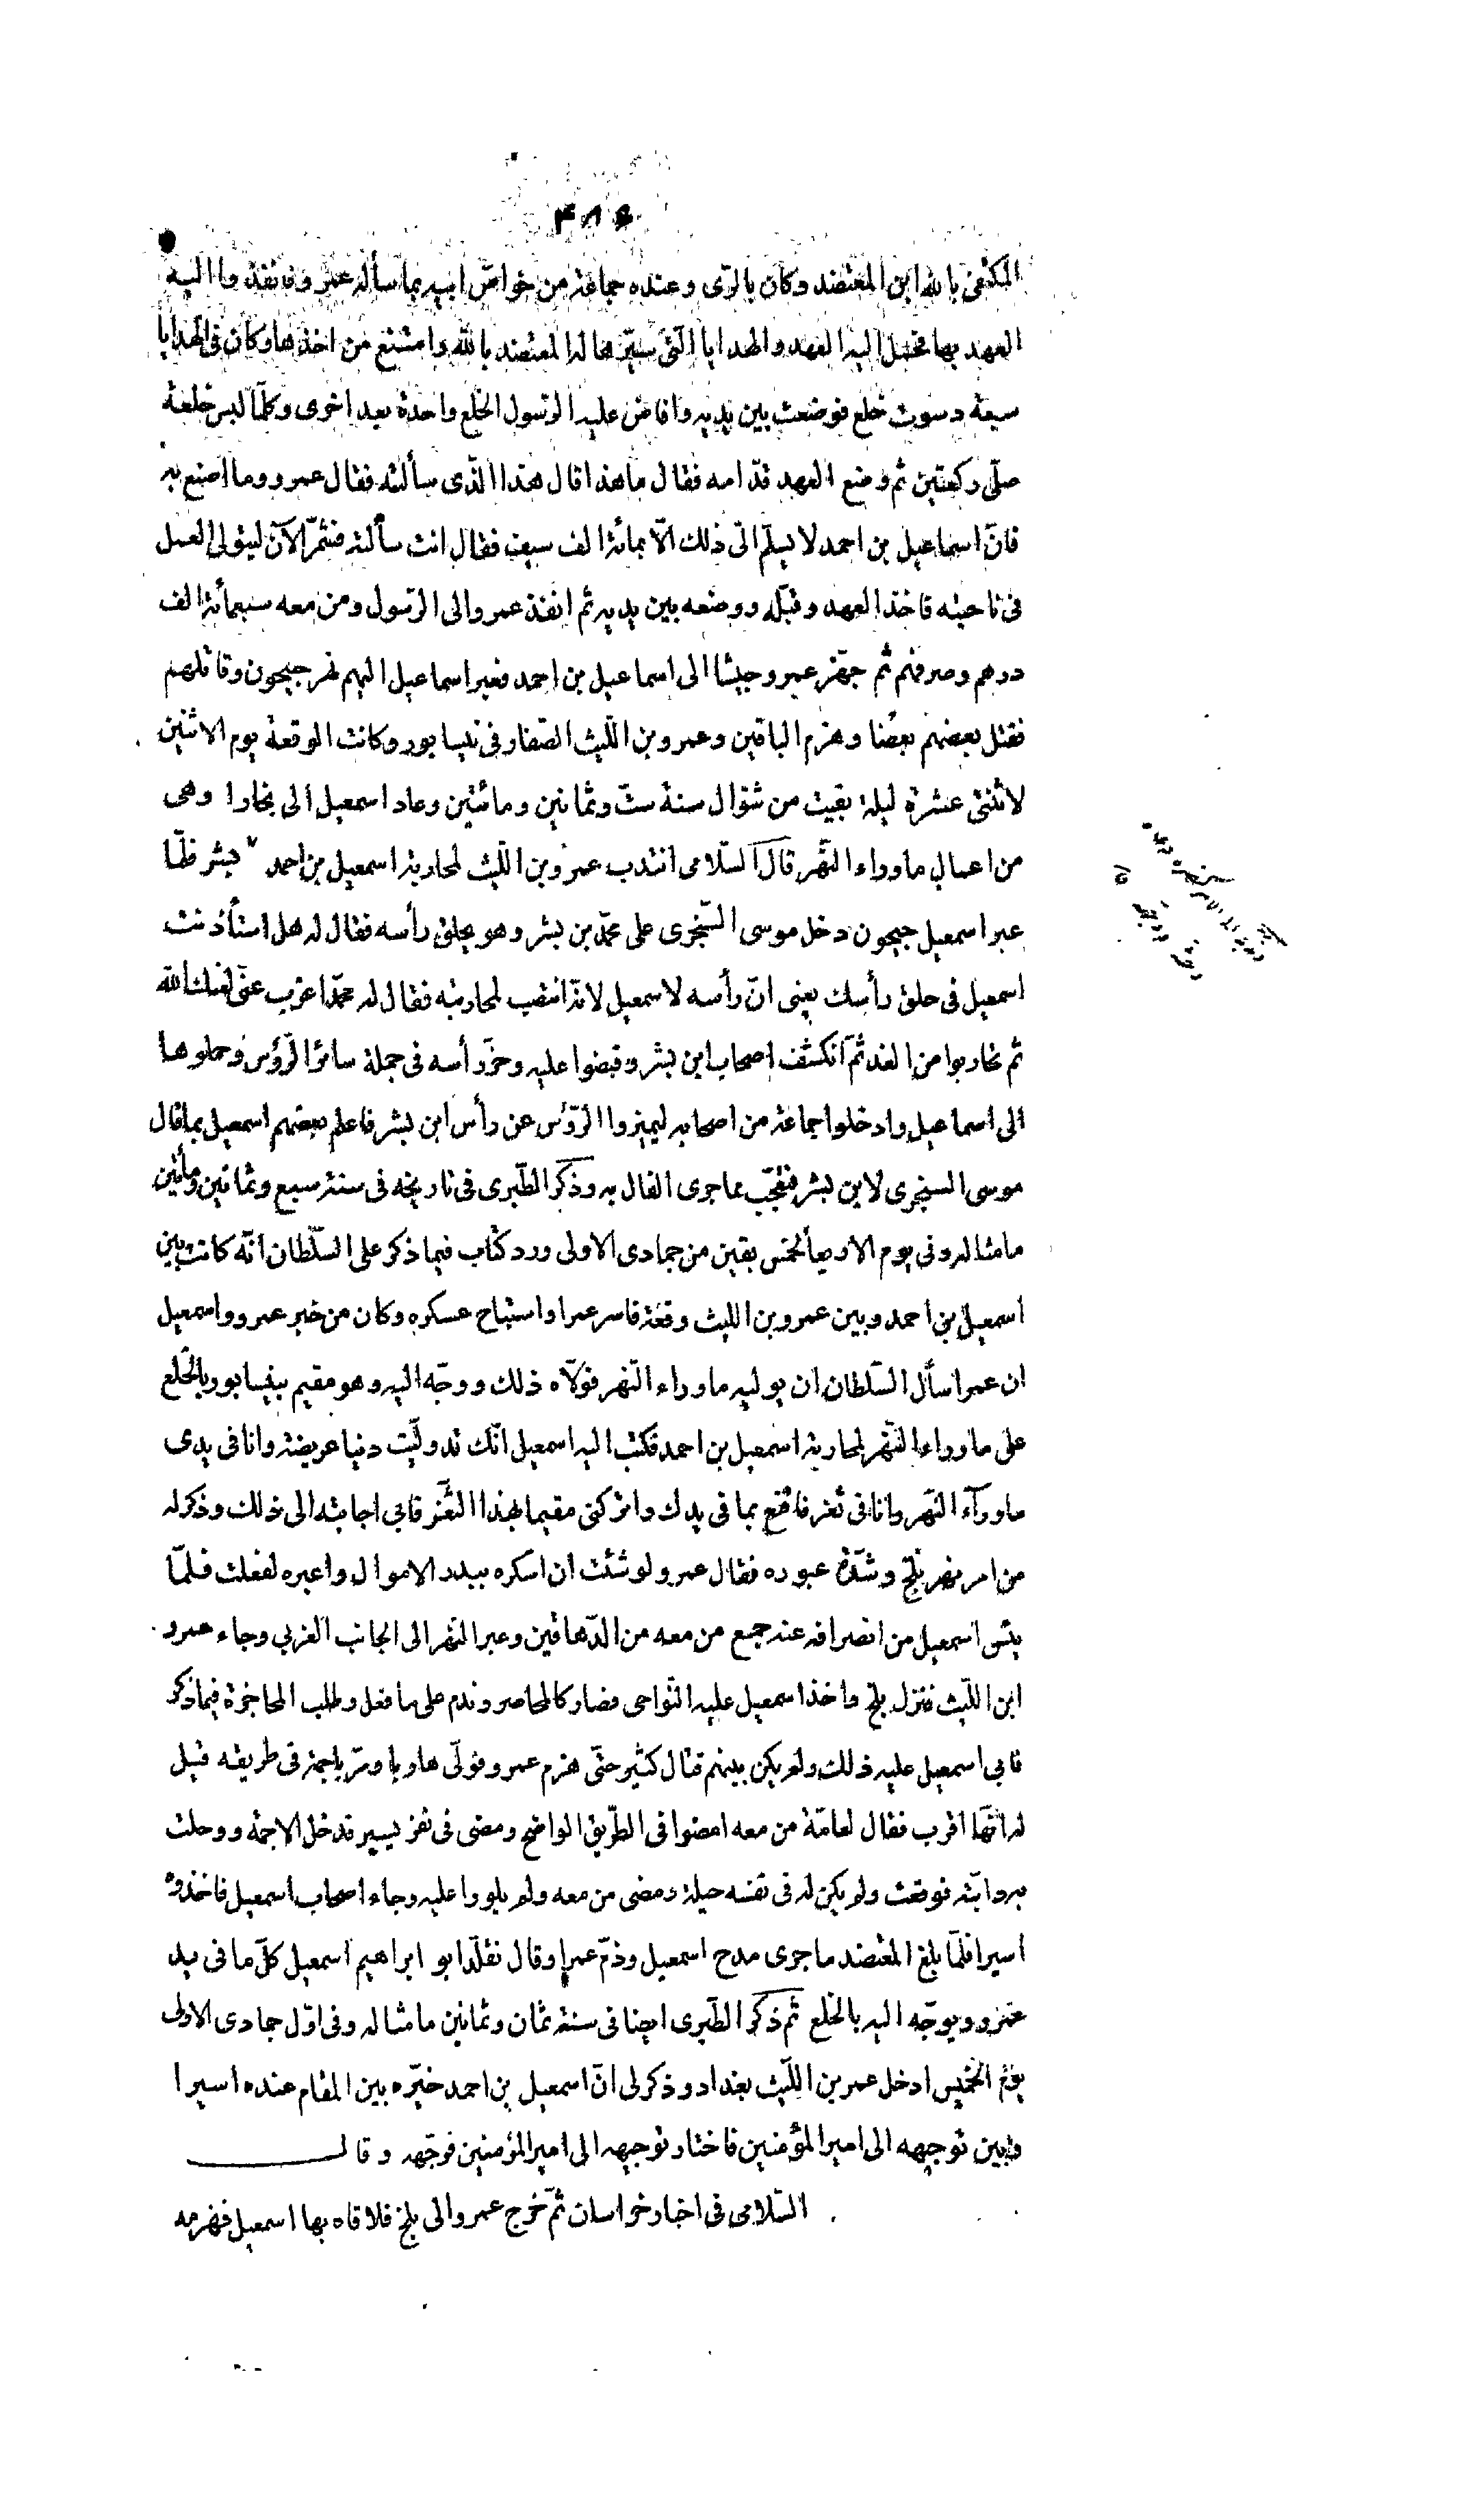 المكتفى بالله ابن المعتضد وكان بالرّى وعنده جماعة من خواصّ ابيه بما سأله عمرو فانفذوا اليه
العهد بها فحمل اليه العهد والهدايا الّتى سيّرها له المعتضد بالله وامتنع من اخذها وكان فى الهدايا
سبعة دسوت خلع فوضعت بين يديه وافاض عليه الرّسول الخلع واحدة بعد اخرى وكلّما لبس خلعة
صلّى ركعتين ثم وضع العهد قدّامه فقال ما هذا قال هذا الّذى سألته فقال عمرو وما اصنع به
فانّ اسماعيل بن احمد لا يسلّم الىّ ذلك الّا بمائة الف سيف فقال انت سألته فشمّر الآن ليتولى العمل
فى ناحيته فاخذ العهد وقبّله ووضعه بين يديه ثم انفذ عمرو الى الرّسول ومن معه سبعمائة الف
درهم وصرفهم ثم جهّز عمرو جيشا الى اسماعيل بن احمد فعبر اسماعيل اليهم نهر جيحون وقاتلهم
فقتل بعضهم بعضا وهزم الباقين وعمرو بن اللّيث الصّفار فى نيسابور وكانت الوقعة يوم الاثنين
لاثنتى عشرة ليلة بقيت من شوّال سنة ستّ وثمانين ومائتين وعاد اسمعيل الى بخارا وهى
من اعمال ماوراء النّهر قال السّلامى انتدب عمرو بن اللّيث لمحاربة اسمعيل بن احمد بشر فلمّا
عبر اسمعيل جيحون دخل موسى السّنجرى على محمّد بن بشر وهو يحلق رأسه فقال له هل استأذنت
اسمعيل فى حلق رأسك يعنى انّ رأسه لاسمعيل لانّه انتصب لمحاربته فقال له محمّد اعزب عنّى لعنك الله
ثم تحاربوا من الغد ثمّ انكشف اصحاب ابن بشر وقبضوا عليه وحزّ رأسه فى جملة سائر الرّؤس وحملوها
الى اسماعيل وادخلوا جماعة من اصحابه ليميزوا الرّؤس عن رأس ابن بشر فاعلم بعضهم اسمعيل بما قال
موسى السنجرى لابن بشر فتعجّب مما جرى الفال به وذكر الطّبرى فى تاريخه فى سنة سبع وثمانين ومأتين
ما مثاله وفى يوم الاربعاء لخمس بقين من جمادى الاولى ورد كتاب فيما ذكر على السّلطان انّه كانت بين
اسمعيل بن احمد وبين عمرو بن الليث وقعة فاسر عمرا واستباح عسكره وكان من خبر عمرو واسمعيل
ان عمرا سأل السّلطان ان يوليه ماوراء النّهر فولّاه ذلك ووجّه اليه وهو مقيم بنيسابور بالخلع
على ماوراء النّهر لمحاربة اسمعيل بن احمد فكتب اليه اسمعيل انّك قد ولّيت دنيا عريضة وانا فى يدى
ماورآء النّهر وانا فى ثغر فاقنع بما فى يدك واتركنى مقيما بهذا الثّغر فابى اجابته الى ذلك وذكر له
من امر نهر بلخ وشدّة عبوره فقال عمرو لو شئت ان اسكره ببدر الاموال واعبره لفعلت فلمّا
يئس اسمعيل من انصرافه عنه جمع من معه من الدّهاقين وعبر النهر الى الجانب الغربى وجاء عمرو
ابن اللّيث فنزل بلخ واخذ اسمعيل عليه النّواحى فصار كالمحاصر وندم على ما فعل وطلب المحاجزة فيما ذكر
فابى اسمعيل عليه ذلك ولم يكن بينهم قتال كثير حتّى هزم عمرو فولّى هاربا ومرّ باجمة فى طريقه قيل
له انّها اقرب فقال لعامّة من معه امضوا فى الطّريق الواضح ومضى فى نفر يسير فدخل الاجمة ووحلت
به دابّته فوقعت ولم يكن له فى نفسه حيلة ومضى من معه ولم يلووا عليه وجاء اصحاب اسمعيل فاخذوه
اسيرا فلمّا بلغ المعتضد ما جرى مدح اسمعيل وذمّ عمرا وقال نقلّد ابو ابراهيم اسمعيل كلّ ما فى يد
عمرو ويوجّه اليه بالخلع ثم ذكر الطّبرى ايضا فى سنة ثمان وثمانين ما مثاله وفى اوّل جمادى الاولى
يوم الخميس ادخل عمر بن اللّيث بغداد وذكر لى انّ اسمعيل بن احمد خيّره بين المقام عنده اسيرا
وبين توجيهه الى امير المؤمنين فاختار توجيهه الى امير المؤمنين فوجّهه وقال
السّلامى فى اخبار خراسان ثمّ خرج عمرو الى بلخ فلاقاه بها اسمعيل فهزمه